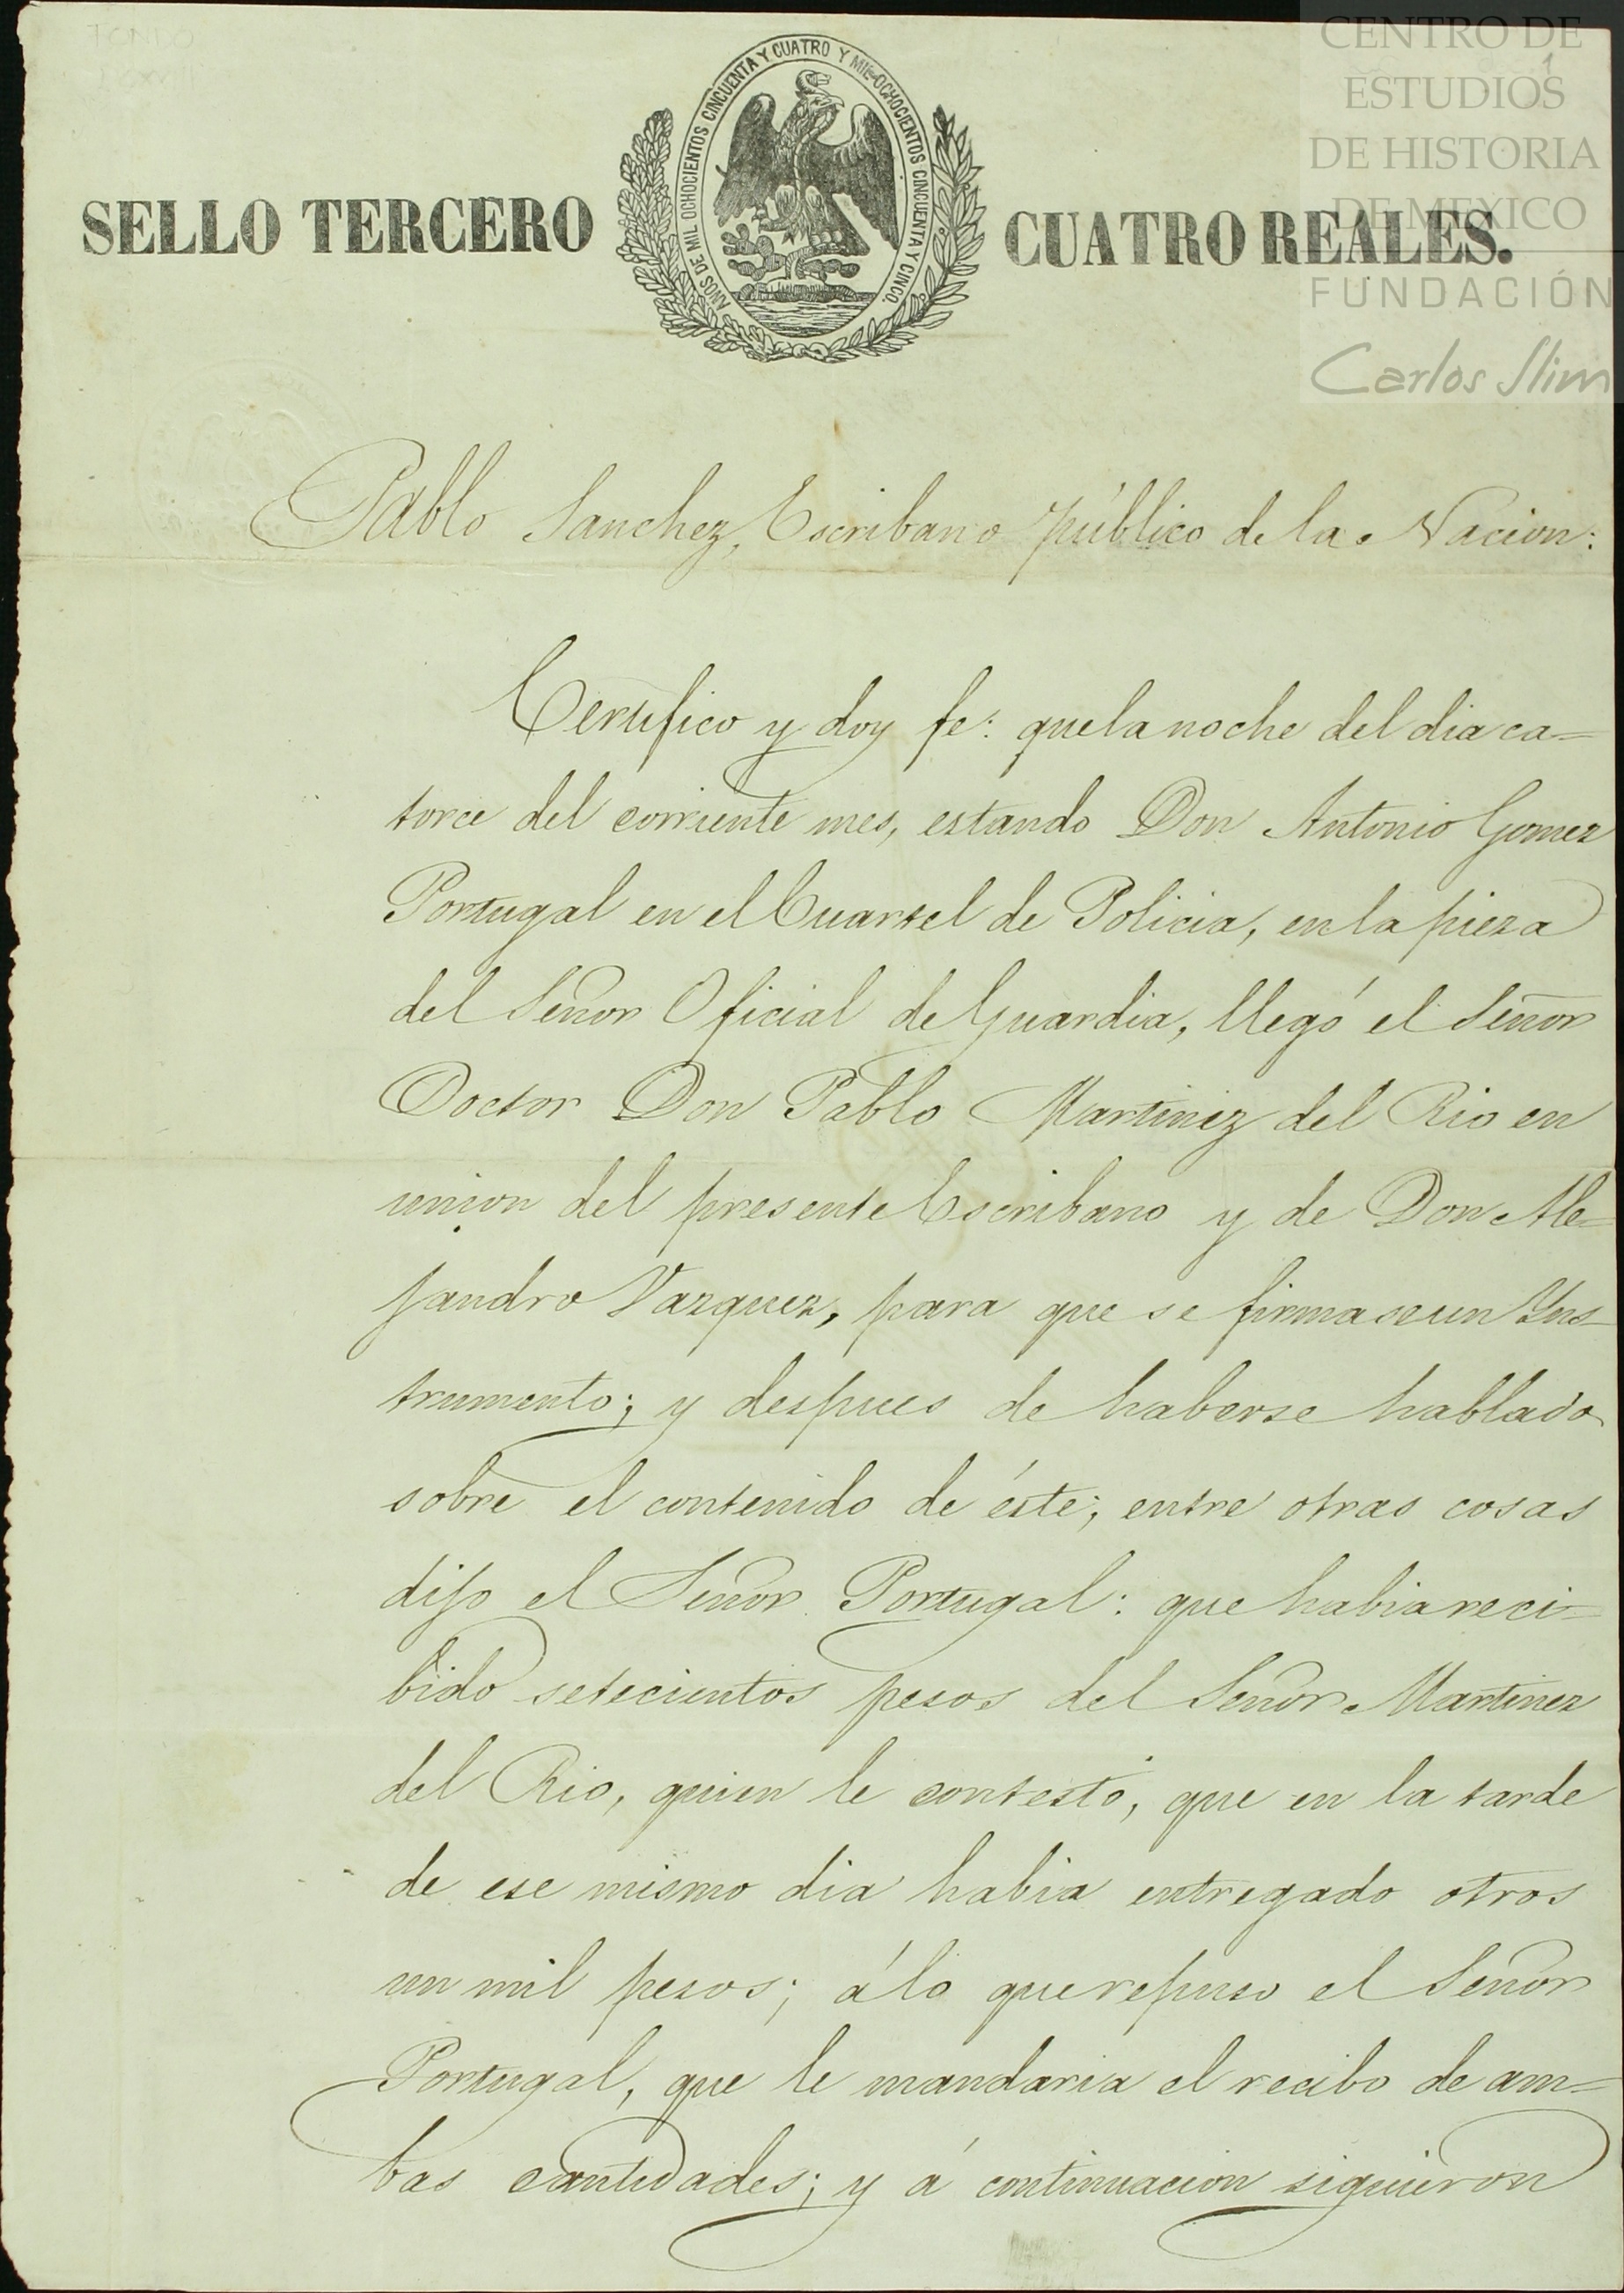 CENTRO DE
ESTUDIOS
DE HISTORIA
DE MEXICO
FUNDACIÓN
Carlos Slim
1
SELLO TERCERO
AÑOS DE MIL OCHOCIENTOS CINCUENTA Y CUATRO Y MIL OCHOCIENTOS CINCUENTA Y CINCO.
CUATRO REALES.
Pablo Sanchez, Escribano público de la Nacion:
Certifico y doy fe: que la noche del dia ca=
torce del corriente mes, estando Don Antonio Gomez
Portugal en el Cuartel de Policia, en la pieza
del Señor Oficial de Guardia, llegó el Señor
Doctor Don Pablo Martinez del Rio en
union del presente Escribano y de Don Ale=
jandro Vazquez, para que se firmase un Yns=
trumento; y despues de haberse hablado
sobre el contenido de éste; entre otras cosas
dijo el Señor Portugal: que habia reci=
bido setecientos pesos del Señor Martinez
del Rio, quien le contestó, que en la tarde
de ese mismo dia habia entregado otros
un mil pesos; á lo que repuso el Señor
Portugal, que le mandaria el recibo de am=
bas cantidades; y á continuacion siguieron